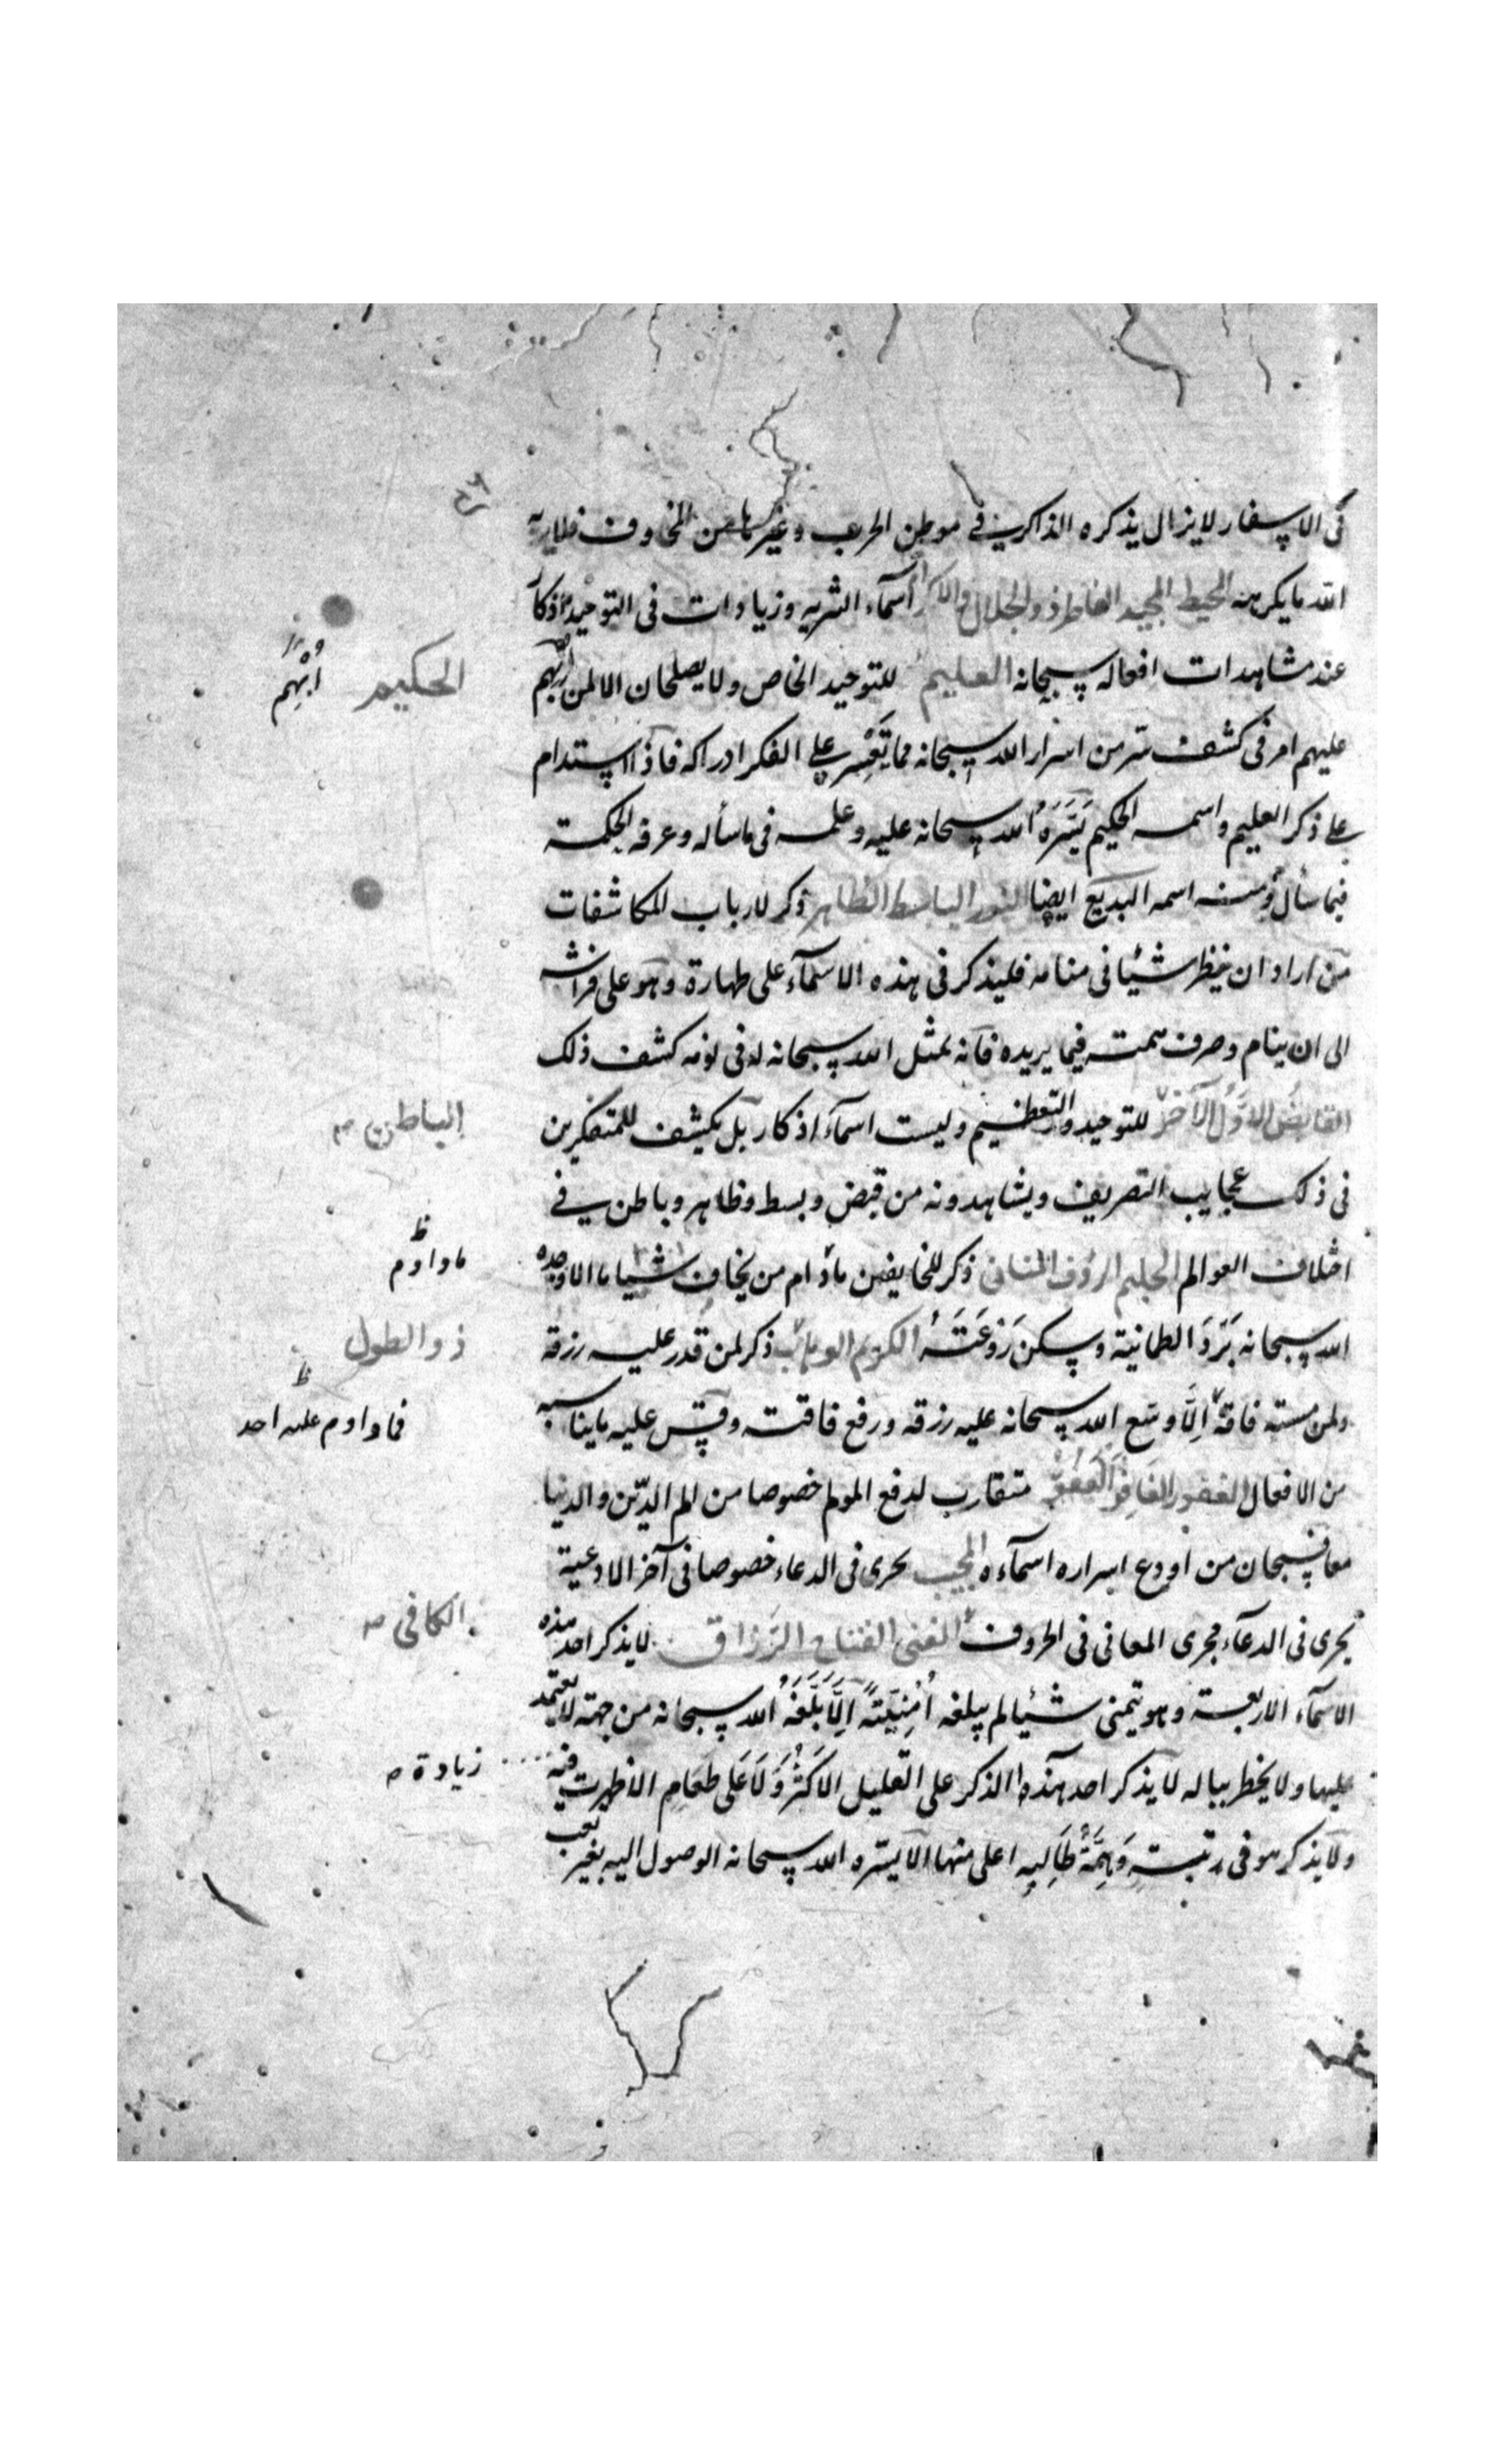 فى الاسفار لا يزال يذكره الذاكرين فى موطن الحرب وغيرها من المخاوف فلا يريه
الله ما يكره منه المحيط المجيد الفاطر ذو الجلال والاكرام اسمآء الشريه وزيادات فى التوحيد واذكار
عند مشاهدات افعاله سبحانه العليم للتوحيد الخاص ولا يصلحان الا لمن اُبْهِم
الحكيم
اُبْهِم
عليهم امر فى كشف سّر من اسرار الله سبحانه مما تَعَسّر على الفكر ادراكه فاذا استدام
على ذكر العليم واسمه الحكيم يَسَّرَهُ الله سبحانه عليه وعلمه فى ما سأله وعرفه الحكمة
فيما سأل ومنه اسمه البديع ايضا النور الباسط الظاهر ذكر لارباب المكاشفات
من اراد ان ينظر شيئا فى منامه فليذكر فى هذه الاسمآء على طهارة وهو على فراشه
الى ان ينام وصرف همته فيما يريده فانه يمثل الله سبحانه له فى نومه كشف ذلك
القابض الاوّل الآخر للتوحيد والتعظيم وليست اسمآء اذكار بل يكشف للمتفكرين
الباطن صـ
فى ذلك عجايب التصريف ويشاهدونه من قبض وبسط وظاهر وباطن فى
اختلاف العوالم الحليم الرؤف المنان ذكر للخايفين ما دام من يخاف شيئا ما الا اوجده
ما داوم
ظ
الله سبحانه بَرْدَ الطمانينة وسكن رَوْعَتَهُ الكريم الوهاب ذكر لمن قدر عليه رزقه
ذو الطول
ولمن مسته فاقةٌ اِلَّا وسّع الله سبحانه عليه رزقه ورفع فاقته وقس عليه ما يناسبه
ظ
فما داوم عليه احد
من الافعال الغفور الغافر العفوّ متقارب لدفع المولم خصوصا من الم الدّين والدنيا
معا فسبحان من اودع اسراره اسمآءه المجيب يجرى فى الدعاء خصوصا فى آخر الادعية
يجرى فى الدعآء مجرى المعانى فى الحروف الغنى الفتاح الرزاق لا يذكر احد هذه
الكافى صـ
الاسمآء الاربعة وهو يتمنى شيئا لم يبلغه اُمْنِيَّتَهُ اِلَّا بَلَّغَهُ الله سبحانه من جهة لا يعتمد
عليها ولا يخطر بباله لا يذكر احد هذا الذكر على القليل الا كَثُرَ وَلَا عَلى طَعَامٍ الا ظهرت فيه
زيادة صـ
ولا يذكر هو فى رتبة وَهِمَّةُ طَالِبِهِ اعلى منها الا يسّره الله سبحانه الوصول اليه بغير تعب